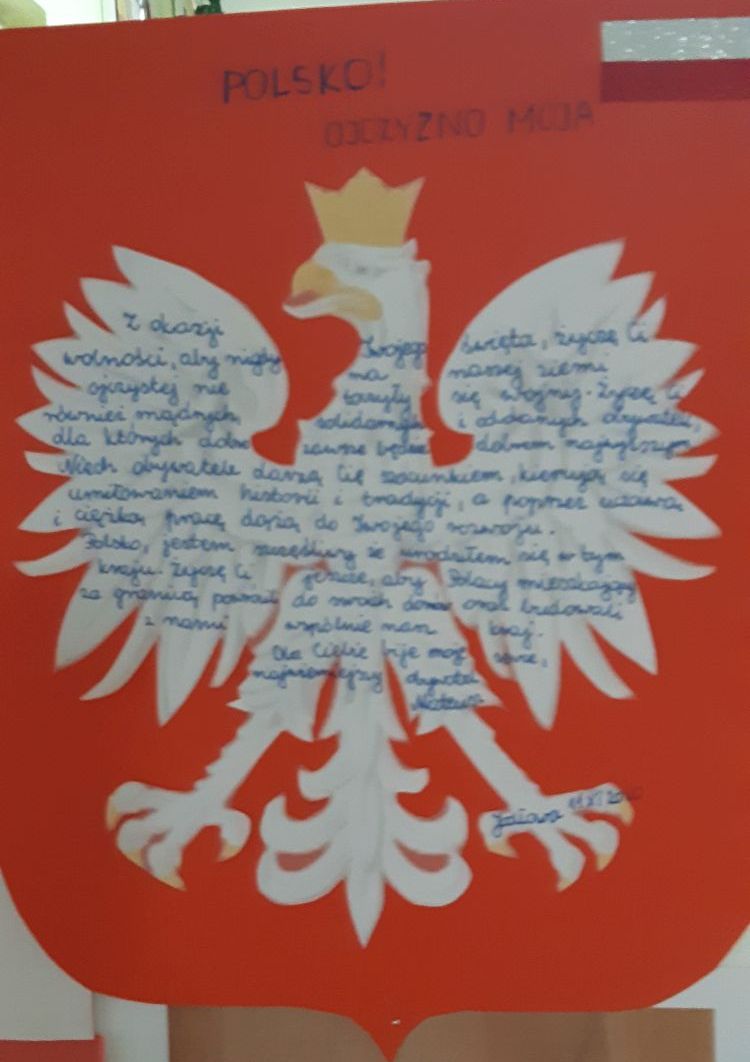 POLSKO!
OJCZYZNO MOJA
Z okazji Twojego święta, życzę Ci
wolności, aby nigdy na naszej ziemi
ojczystej nie toczyły się wojny. Życzę Ci
również mądrych, solidarnych i oddanych obywateli,
dla których dobro zawsze będzie dobrem najwyższym.
Niech obywatele darzą Cię szacunkiem, kierują się
umiłowaniem historii i tradycji, a poprzez uczciwą
i ciężką pracę dążą do Twojego rozwoju.
Polsko, jestem szczęśliwy że urodziłem się w tym
kraju. Życzę Ci jeszcze, aby Polacy mieszkający
za granicą powrócili do swoich domów oraz budowali
z nami wspólnie nasz kraj.
Dla Ciebie bije moje serce,
najwierniejszy obywatel
Mateusz
11 XI